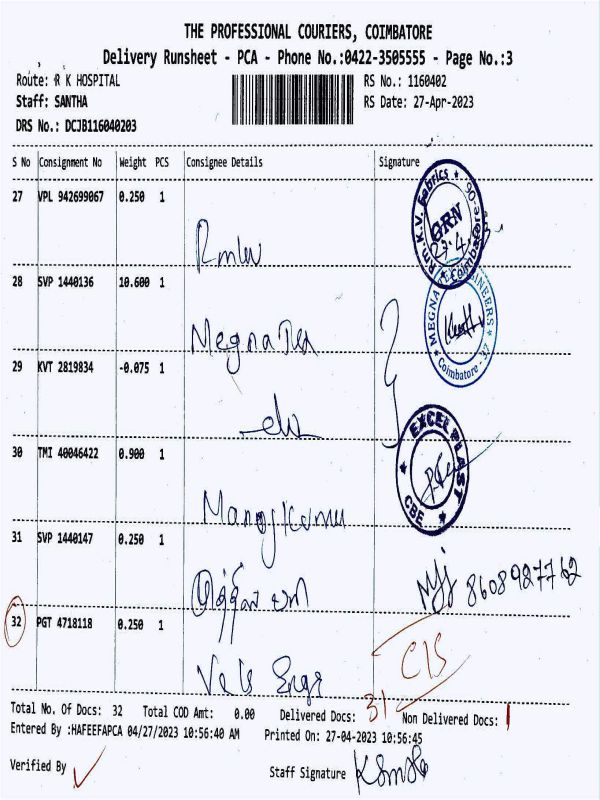 THE PROFESSIONAL COURIERS, COIMBATORE
Delivery Runsheet - PCA - Phone No.:0422-3505555 - Page No.:3
Route: R K HOSPITAL
RS No.: 1160402
Staff: SANTHA
RS Date: 27-Apr-2023
DRS No.: DCJB116040203
S No Consignment No Weight PCS Consignee Details Signature
27 VPL 942699067 0.250 1
Rm.K.V. Fabrics
GRN
Coimbatore
28 SVP 1440136 10.600 1
Megna Tex
MEGNA
Coimbatore - 37
29 KVT 2819834 -0.075 1
30 TMI 40046422 0.900 1
EXCEL PLAST
CBE
Manoj Kumar
31 SVP 1440147 0.250 1
8608987762
32 PGT 4718118 0.250 1
Total No. Of Docs: 32 Total COD Amt: 0.00 Delivered Docs: 31 Non Delivered Docs: 1
Entered By :HAFEEFAPCA 04/27/2023 10:56:40 AM Printed On: 27-04-2023 10:56:45
Verified By
Staff Signature